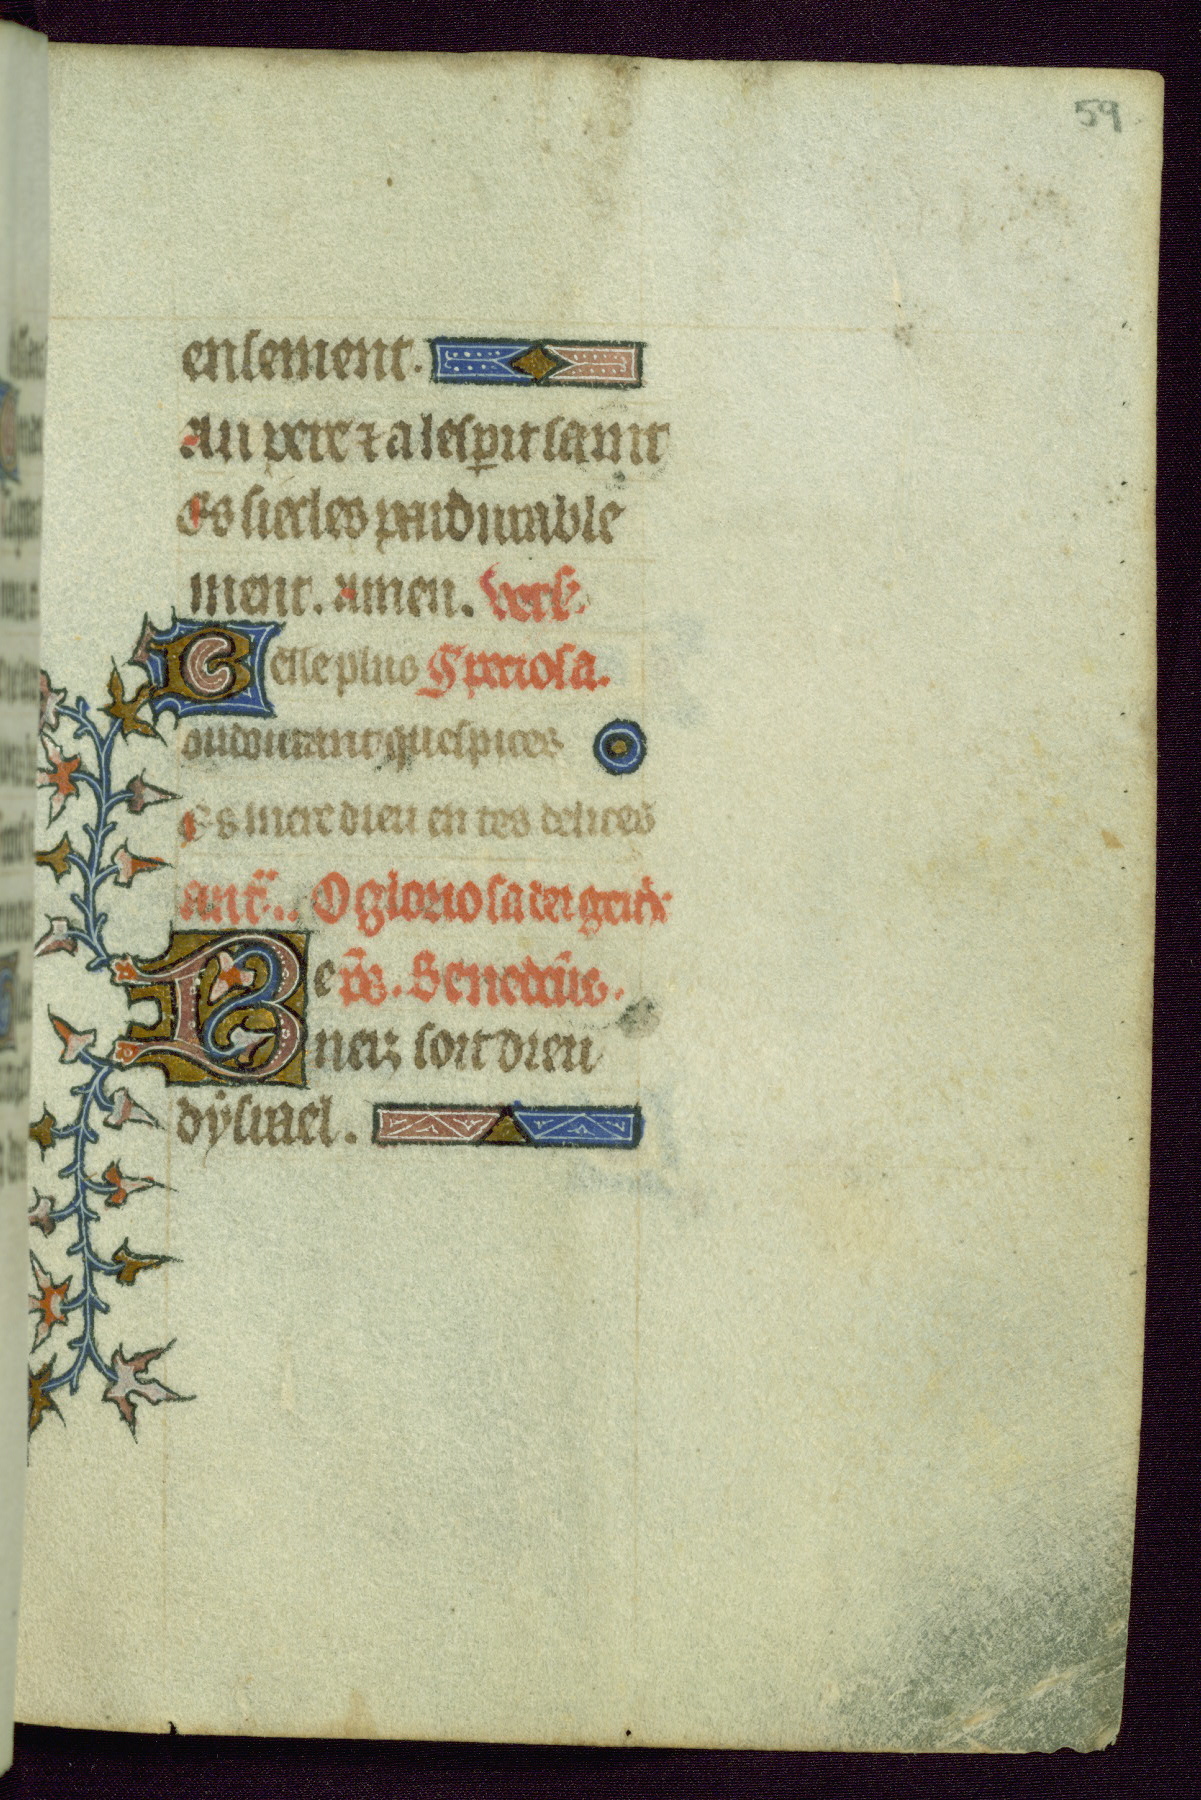 59
ensement.
Au pere ⁊ a lesperit saint
Es siecles pardurable
ment. Amen. Vers.
Belle plus Speciosa.
oudourant quespices
Es mere dieu en tes delices
Ant.. O gloriosa dei genitrix
Be ps. Benedictus.
neiz soit dieu
dysrael.